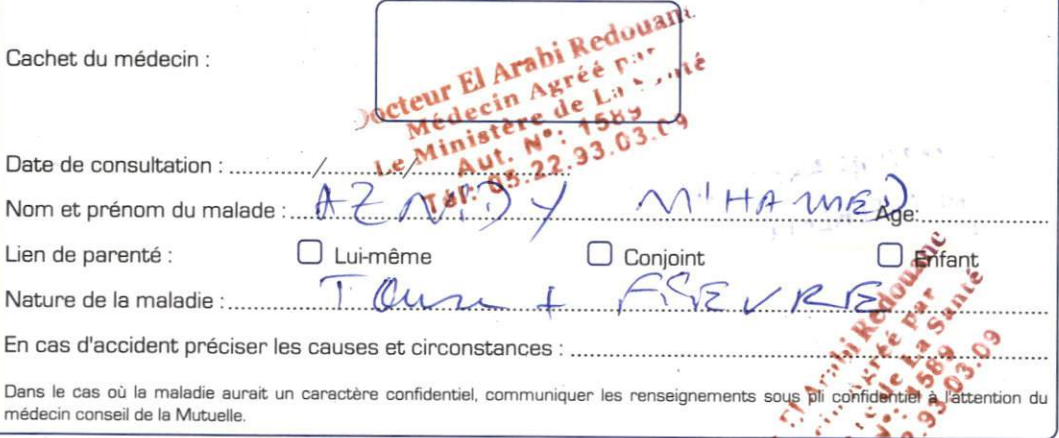 Cachet du médecin :
Docteur El Arabi Redouane
Médecin Agréé par
Le Ministère de La Santé
Aut. N°: 1589
Tél: 05.22.93.03.09
Date de consultation : ....../....../......
Nom et prénom du malade : M'HAMED Age:
Lien de parenté : Lui-même Conjoint Enfant
Nature de la maladie : Toux + FIEVRE
En cas d'accident préciser les causes et circonstances :
El Arabi Redouane
Agréé par
de La Santé
1589
93.03.09
Dans le cas où la maladie aurait un caractère confidentiel, communiquer les renseignements sous pli confidentiel à l'attention du
médecin conseil de la Mutuelle.